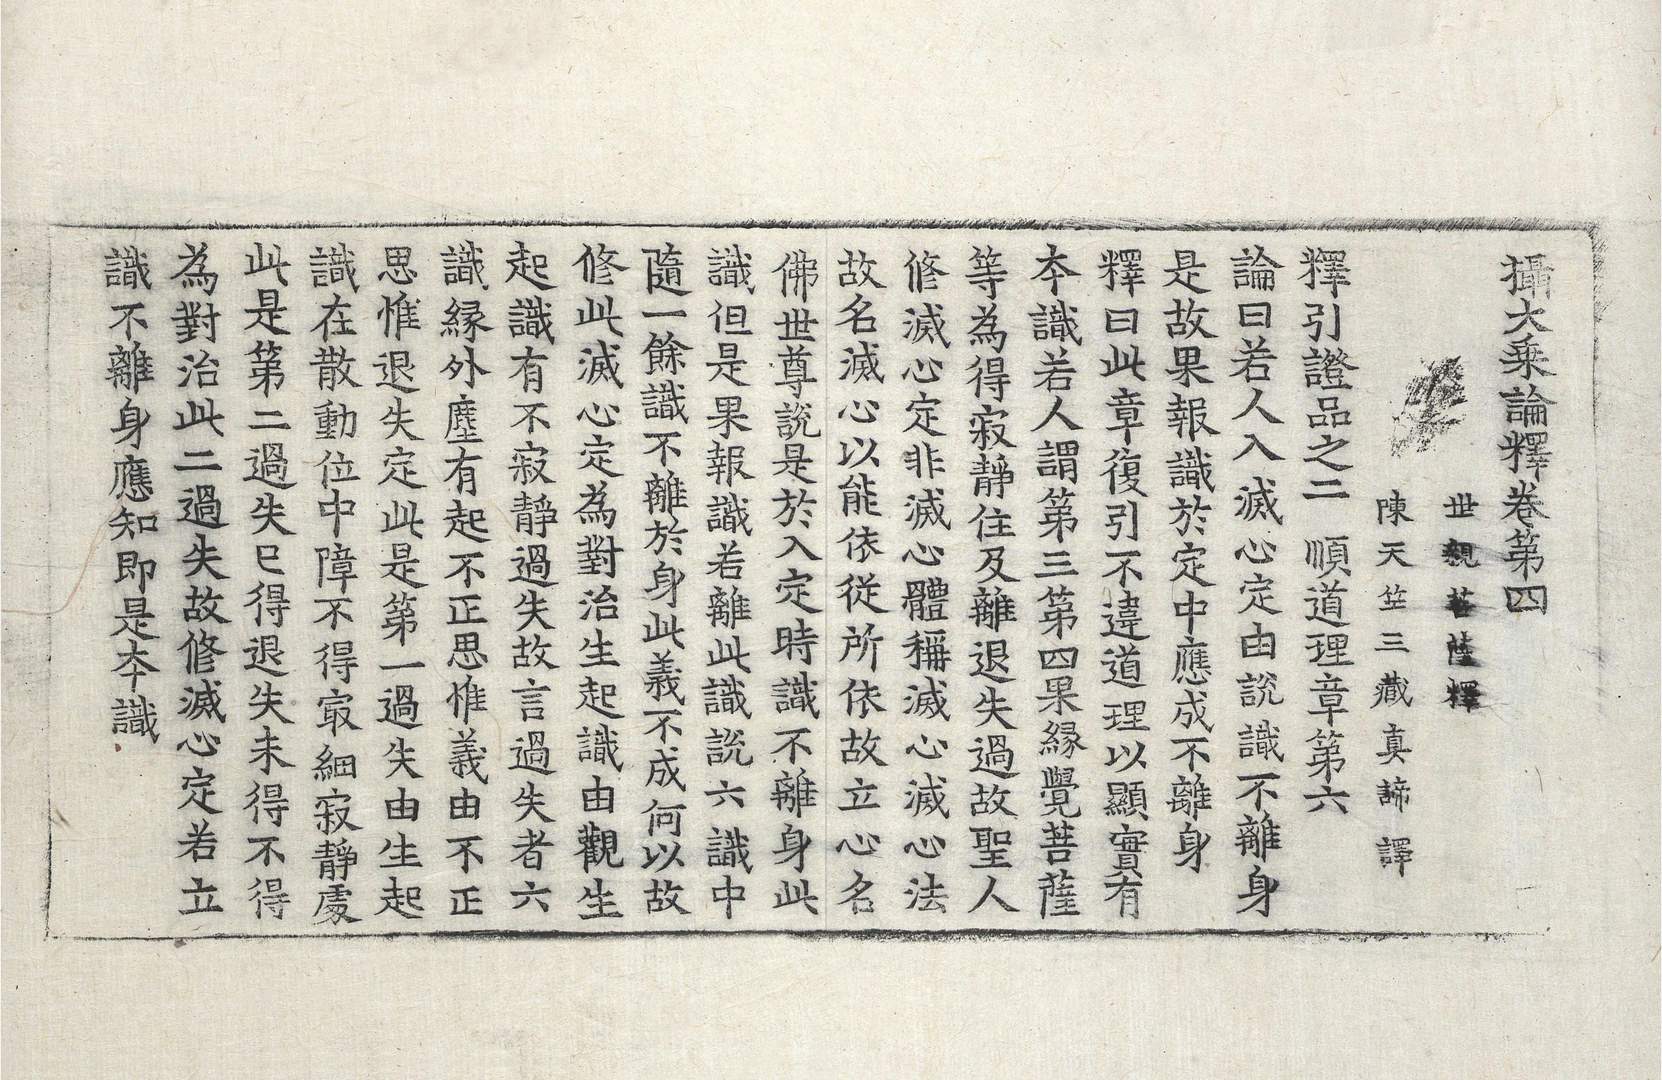 攝大乗論釋卷第四
世親菩薩釋
陳天竺三藏真諦譯
釋引證品之二　順道理章第六
論曰若人入滅心定由說識不離身
是故果報識於定中應成不離身
釋曰此章復引不違道理以顯實有
夲識若人謂第三第四果緣覺菩薩
等為得寂靜住及離退失過故聖人
修滅心定非滅心體稱滅心滅心法
故名滅心以能依從所依故立心名
佛世尊說是於入定時識不離身此
識但是果報識若離此識說六識中
隨一餘識不離於身此義不成何以故
修此滅心定為對治生起識由觀生
起識有不寂靜過失故言過失者六
識緣外塵有起不正思惟義由不正
思惟退失定此是第一過失由生起
識在散動位中障不得㝡細寂靜處
此是第二過失已得退失未得不得
為對治此二過失故修滅心定若立
識不離身應知即是夲識